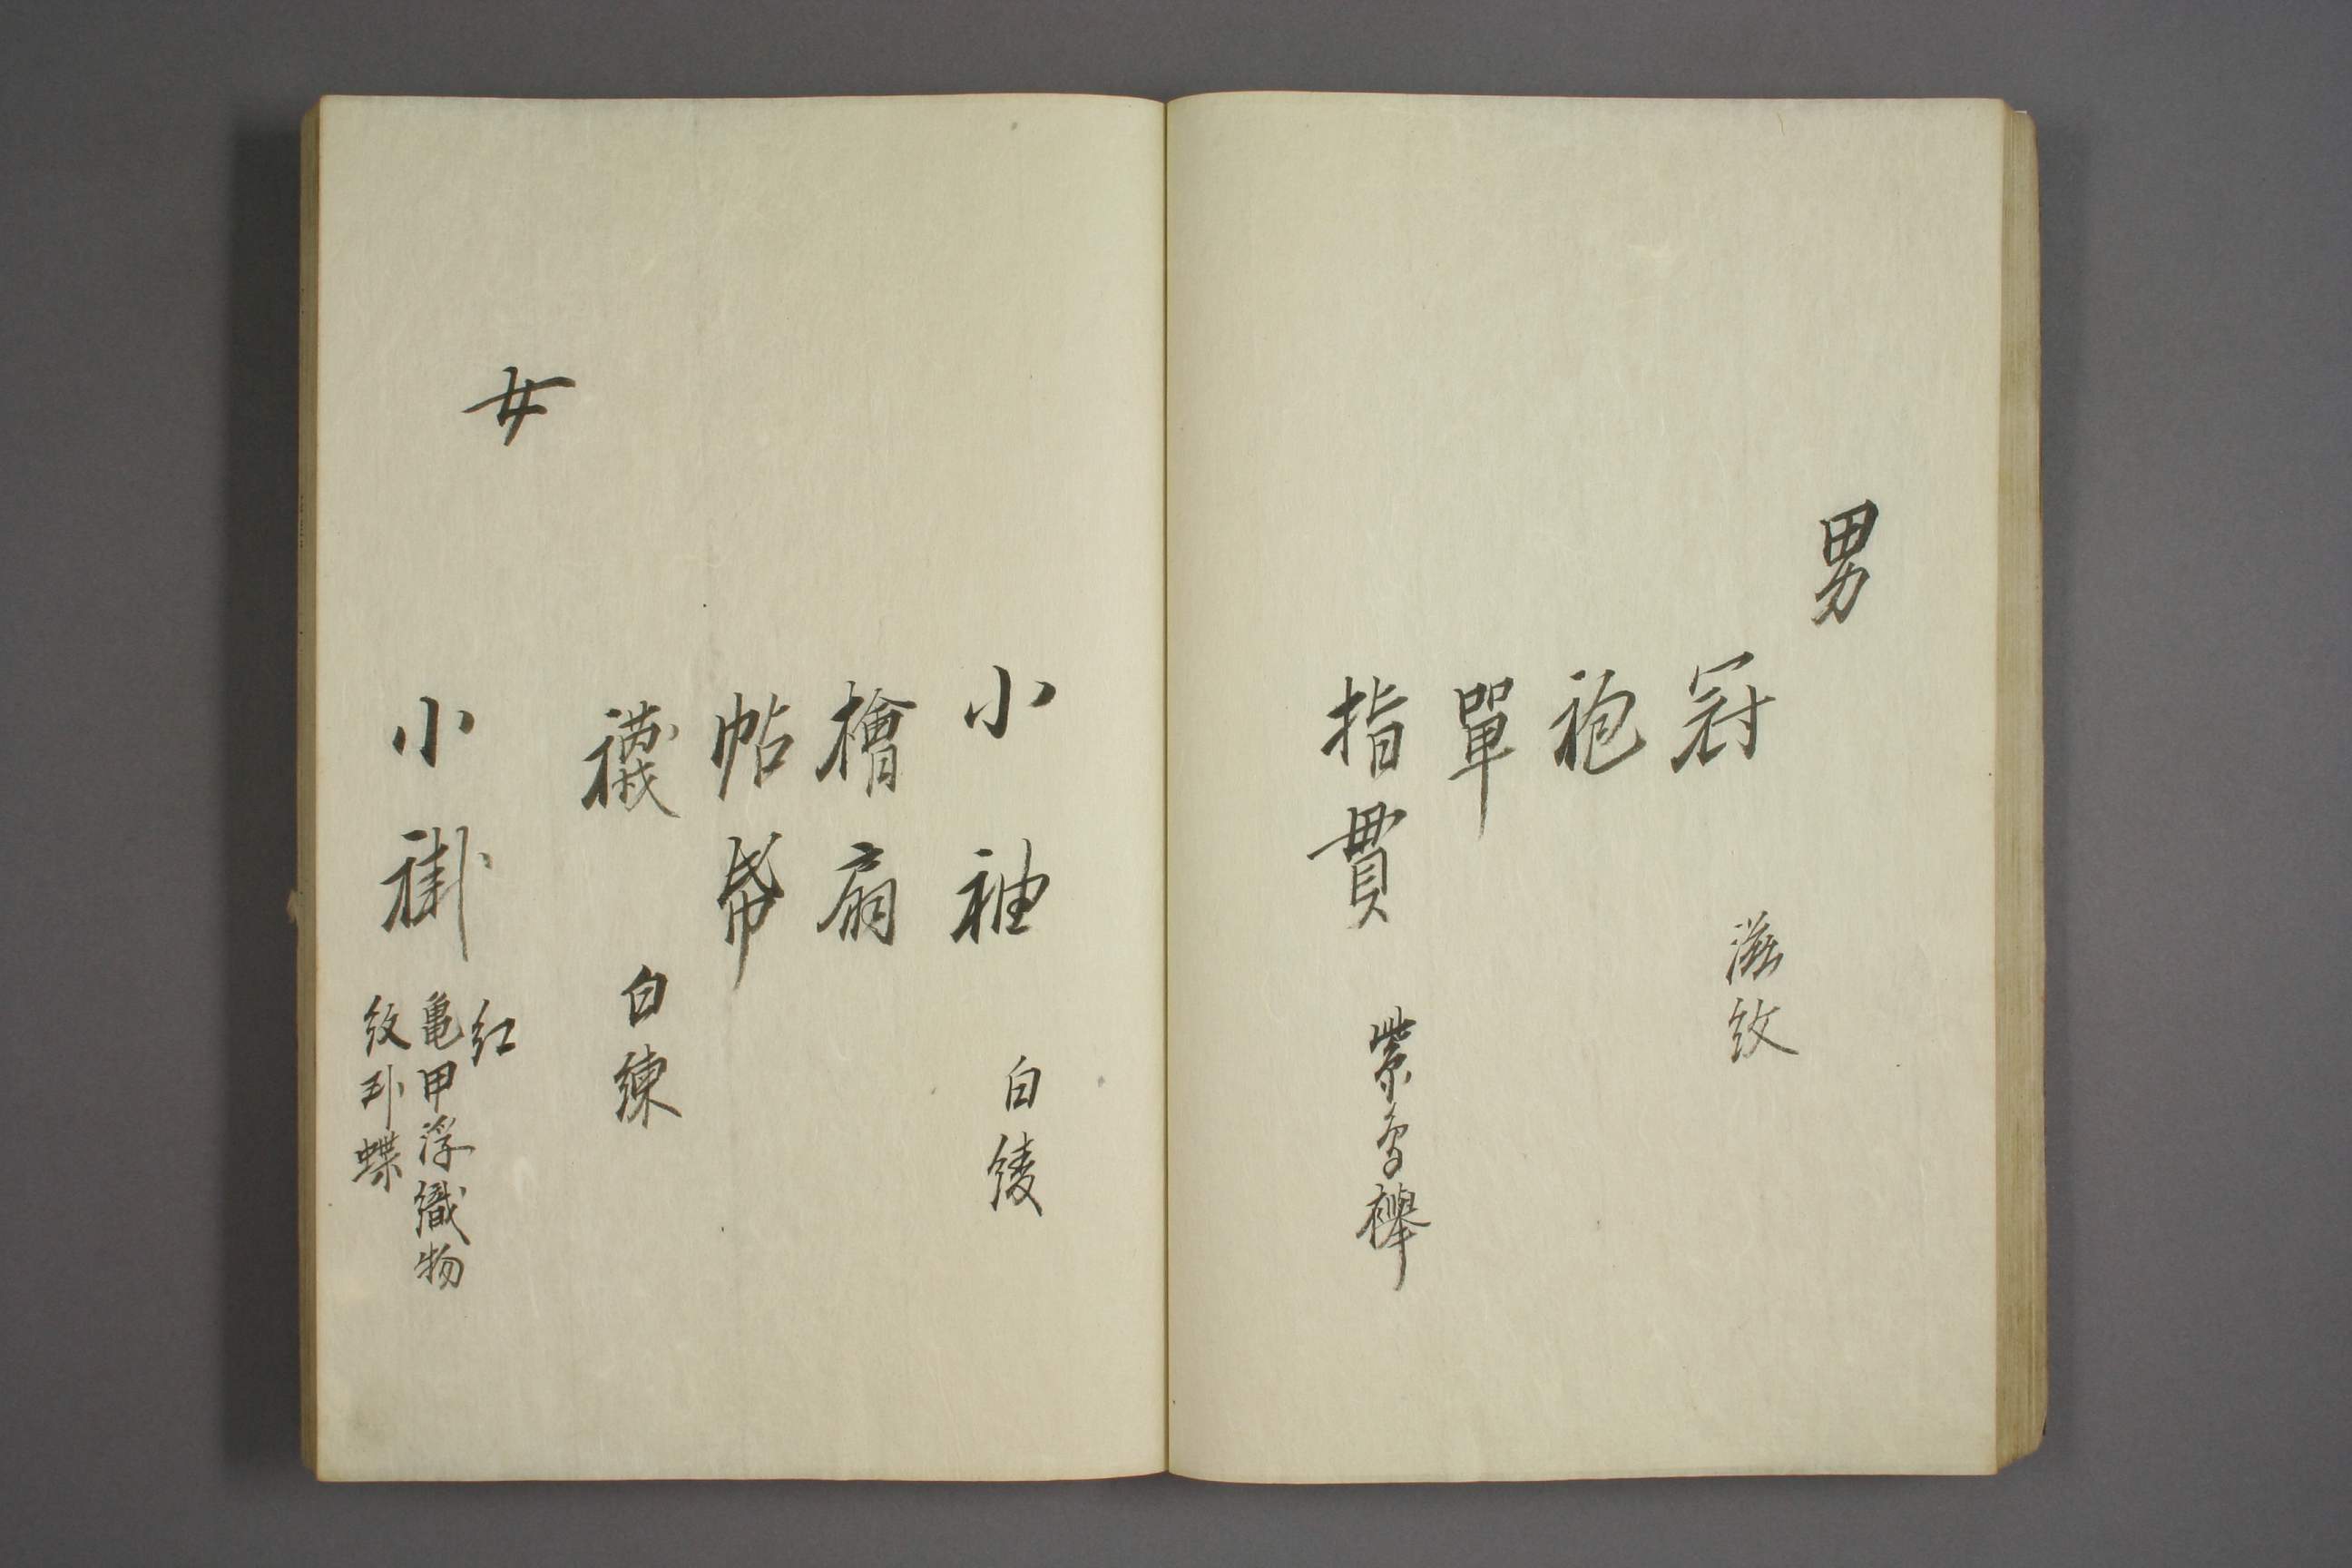 男
冠
滋紋
袍
單
指貫
小袖 白綾
檜扇
帖帋
襪 白練
女
小褂
紅
亀甲浮織物
紋 蝶